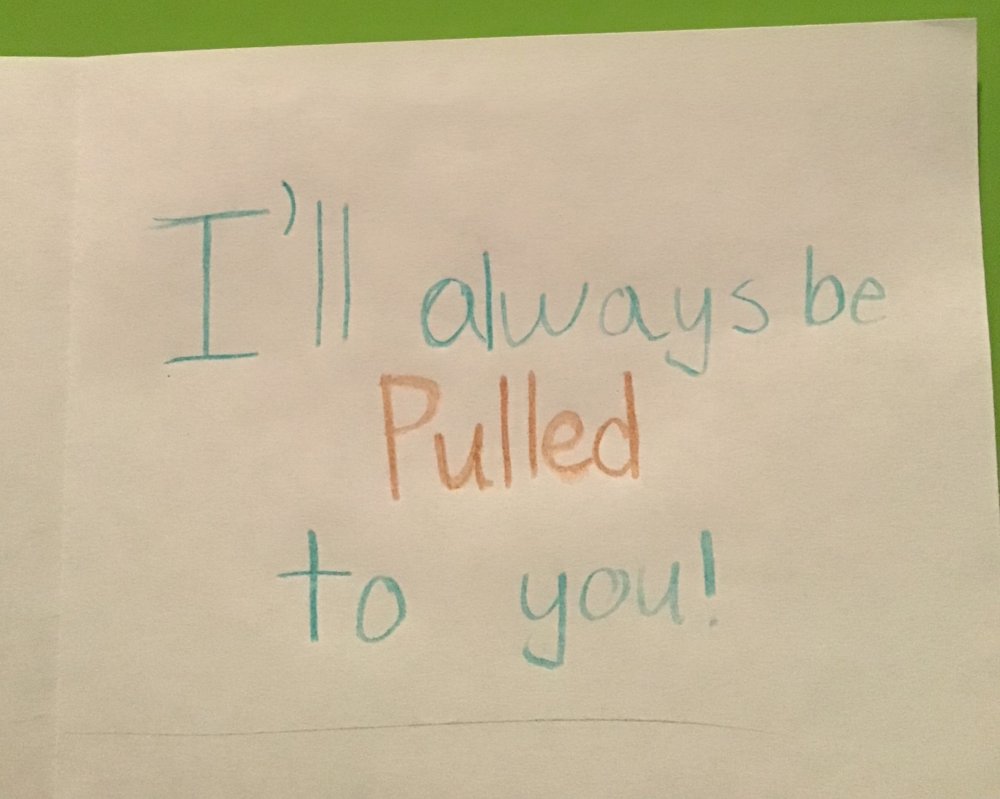 I'll always be
Pulled
to you!